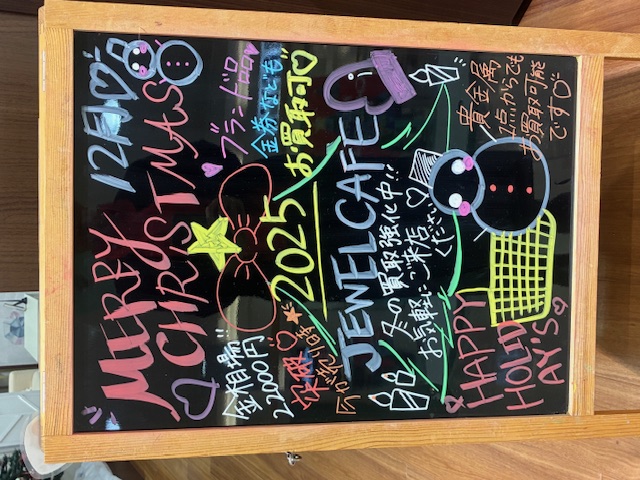 12月
MERRY
CHRSTMAS
ブランド品
金券なども
お買取可♡
金相場!!
22000円
突破♡
今が売り時
2025
JEWELCAFE
冬の買取強化中!!
お気軽にご来店
ください
貴金属
1点からでも
お買取可能
です♡
HAPPY
HOLID
AY'S♡